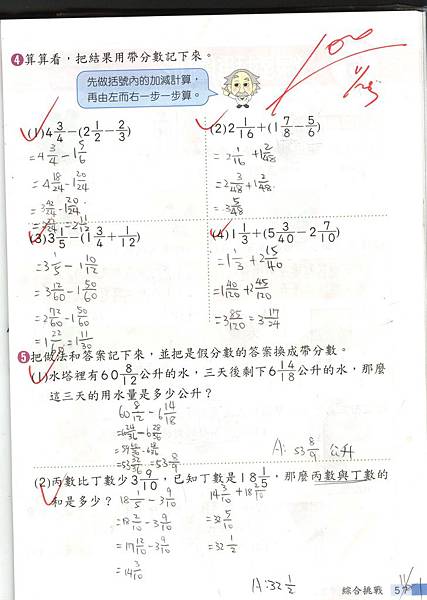 100
11/25
❹算算看，把結果用帶分數記下來。
先做括號內的加減計算，
再由左而右一步一步算。
(1)4 3/4−(2 1/2−2/3)
=4 3/4−1 5/6
=4 18/24−1 20/24
=3 42/24−1 20/24
=2 22/24=2 11/12
(2)2 1/16+(1 7/8−5/6)
=2 1/16+1 2/48
=2 3/48+1 2/48
=3 5/48
(3)3 1/5−(1 3/4+1/12)
=3 1/5−1 10/12
=3 12/60−1 50/60
=2 72/60−1 50/60
=1 22/60=1 11/30
(4)1 1/3+(5 3/40−2 7/10)
=1 1/3+2 15/40
=1 40/120+2 45/120
=3 85/120=3 17/24
❺把做法和答案記下來，並把是假分數的答案換成帶分數。
(1)水塔裡有60 8/12公升的水，三天後剩下6 14/18公升的水，那麼
這三天的用水量是多少公升？
60 8/12−6 14/18
=6 24/36−6 28/36
=59 60/36−6 28/36
=53 32/36=53 8/9
A：53 8/9 公升
(2)丙數比丁數少3 9/10，已知丁數是18 1/5，那麼丙數與丁數的
和是多少？
18 1/5−3 9/10
=18 2/10−3 9/10
=17 12/10−3 9/10
=14 3/10
14 3/10+18 2/10
=32 5/10
=32 1/2
A：32 1/2
綜合挑戰 57